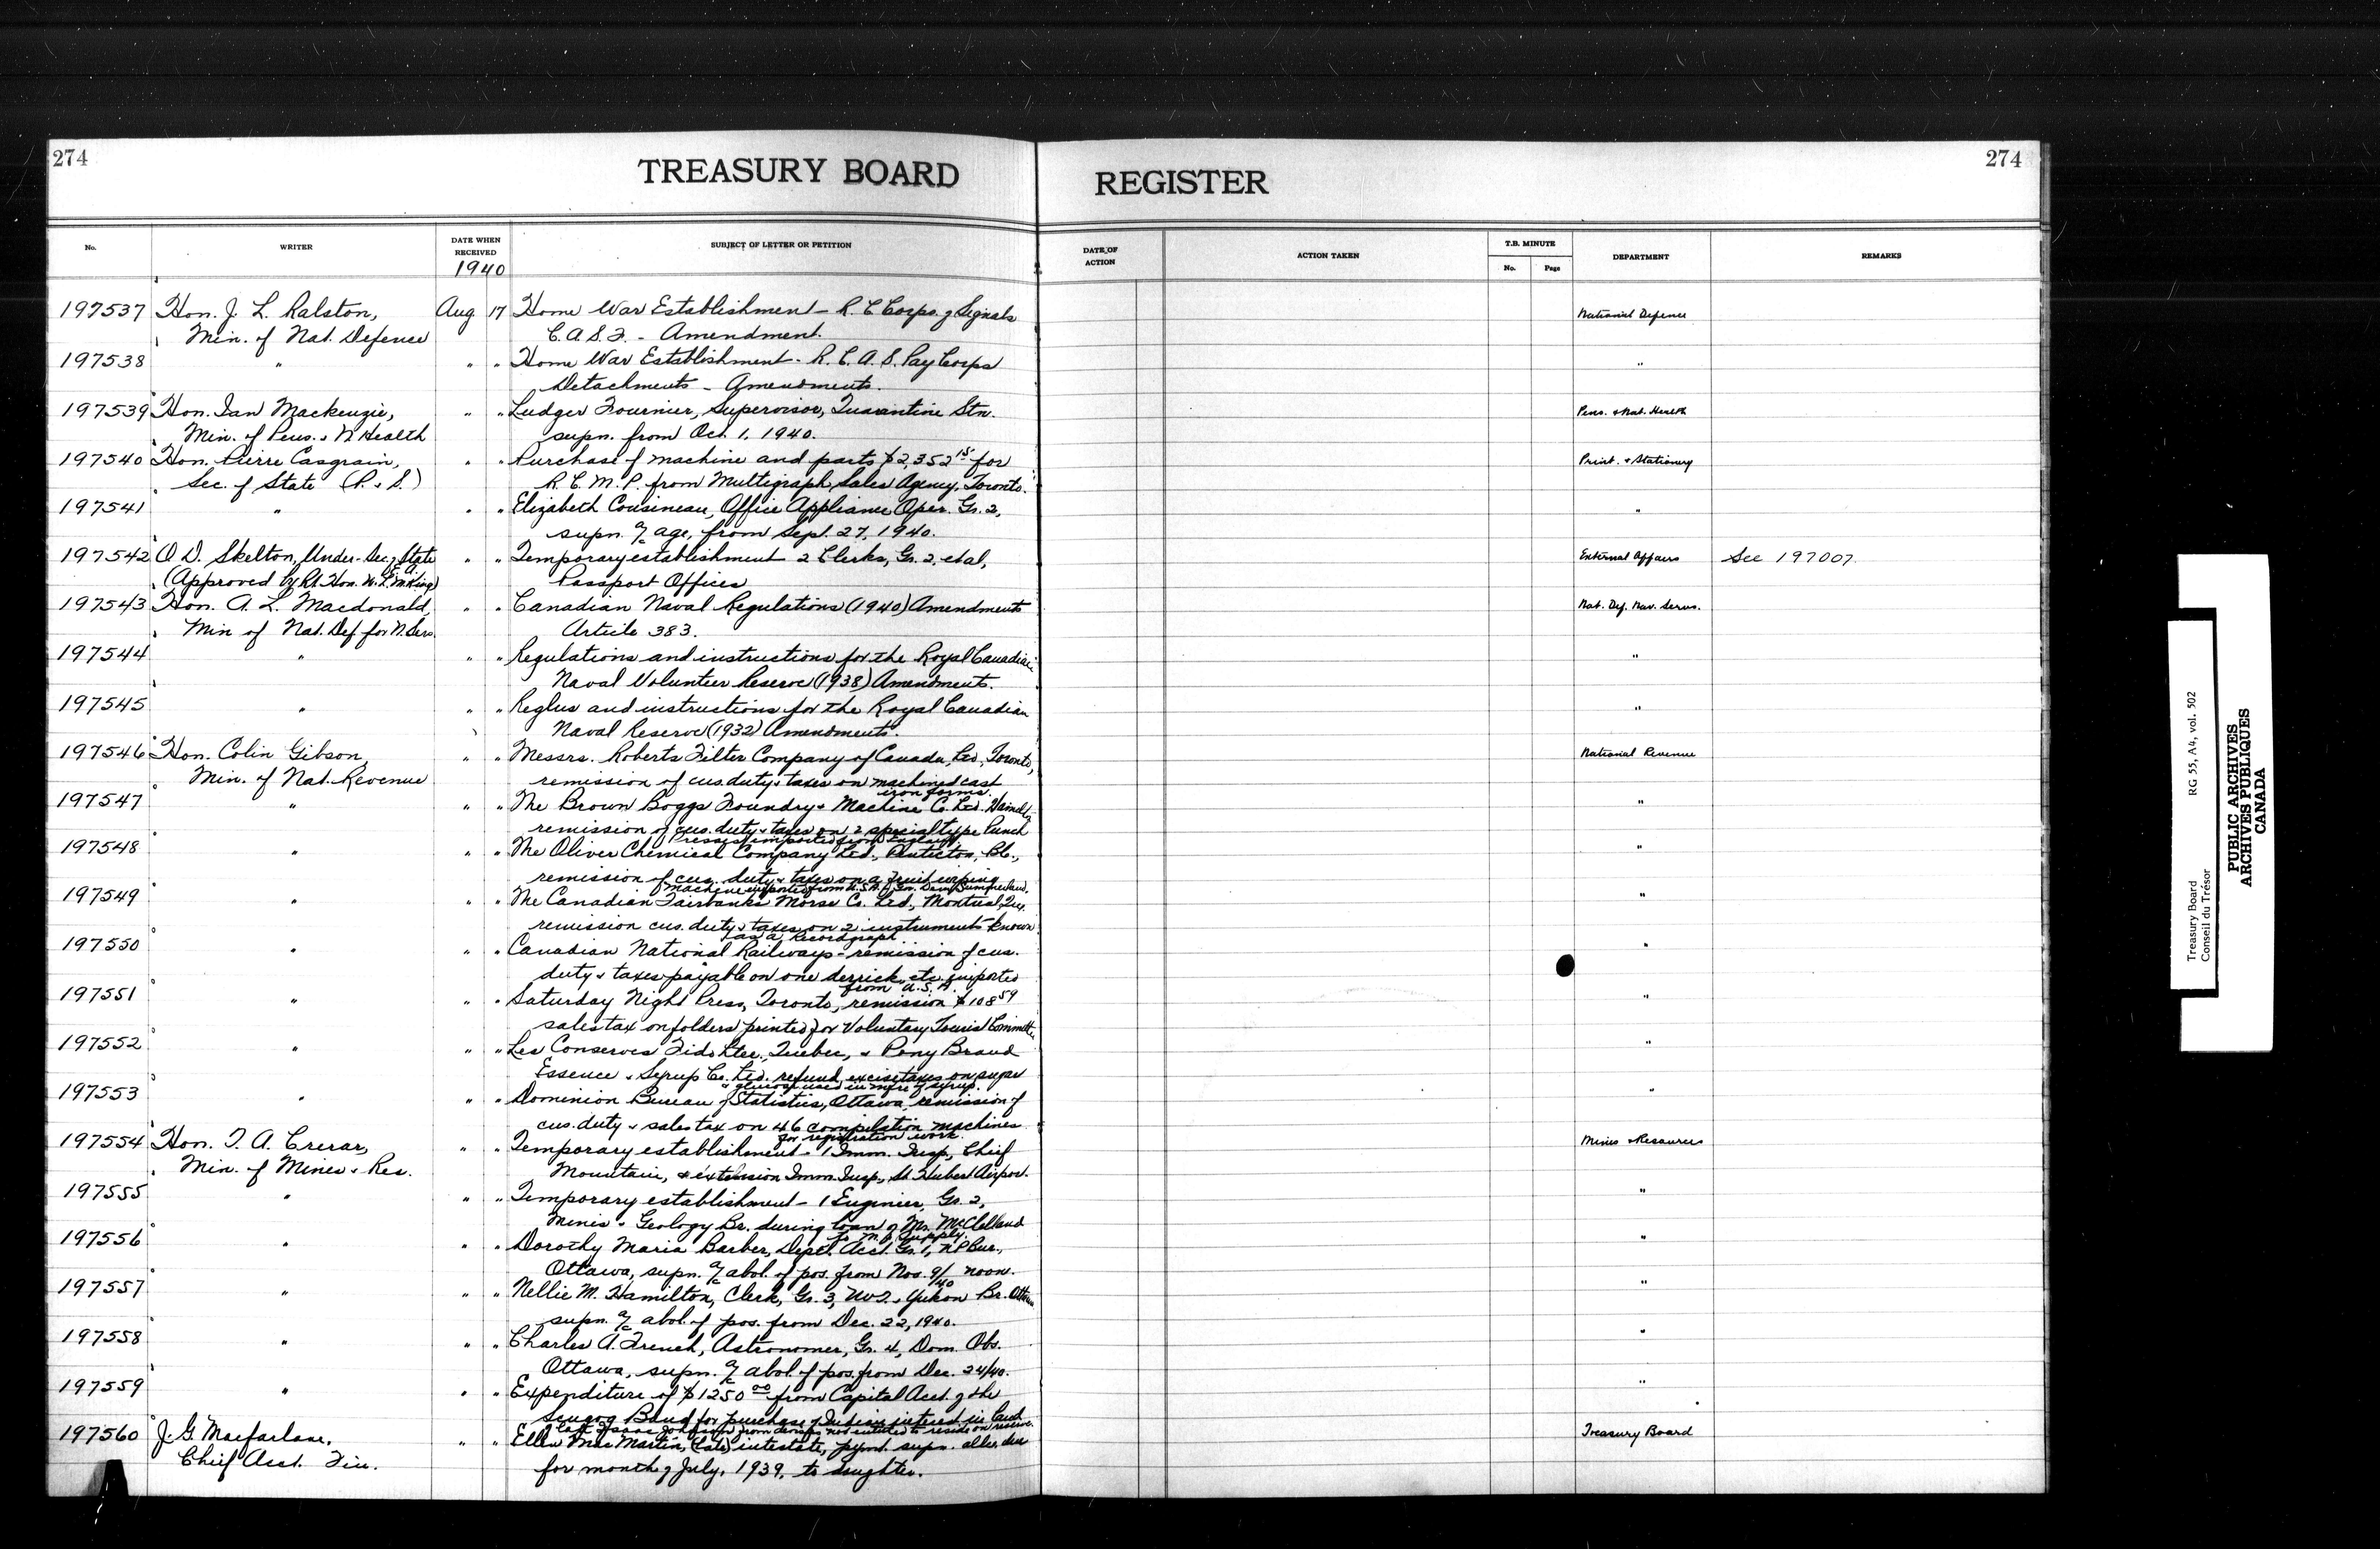 274
TREASURY BOARD
REGISTER
274
No.
WRITER
DATE WHEN RECEIVED
1940
SUBJECT OF LETTER OR PETITION
DATE OF ACTION
ACTION TAKEN
T.B. MINUTE
No.
Page
DEPARTMENT
REMARKS
197537 Hon. J. L. Ralston, Aug 17 Home War Establishment – R. C. Corps of Signals National Defence
Min. of Nat. Defence C.A.S.F. – Amendment.
197538 " " " Home War Establishment – R. C. A. S. Pay Corps "
Detachments – Amendments.
197539 Hon. Ian Mackenzie, " " Ludger Fournier, Supervisor, Quarantine Stn. Pens. & Nat. Health
Min. of Pens. & N Health supn. from Oct. 1, 1940.
197540 Hon. Pierre Casgrain, " " Purchase of machine and parts $2,352 15 for Print. & Stationery
Sec. of State (P. & S.) R. C. M. P. from Multigraph Sales Agency, Toronto.
197541 " " " Elizabeth Cousineau, Office Appliance Oper. Gr. 2, "
supn. a/c age, from Sept. 27, 1940.
197542 O D. Skelton, Under-Sec. of State " " Temporary establishment 2 Clerks, Gr. 2, et al, External Affairs See 197007
E. A.
(Approved by Rt. Hon. W. L. M King) Passport Offices
197543 Hon. A. L. Macdonald, " " Canadian Naval Regulations (1940) Amendments Nat. Def. Nav. Servs.
Min of Nat. Def. for N. Serv. Article 383.
197544 " " " Regulations and instructions for the Royal Canadian "
Naval Volunteer Reserve (1938) Amendments.
197545 " " " Reglns and instructions for the Royal Canadian "
Naval Reserve (1932) Amendments.
197546 Hon. Colin Gibson, " " Messrs. Roberts Filter Company of Canada, Ltd., Toronto, National Revenue
Min. of Nat. Revenue remission of cus. duty & taxes on machined cast
iron forms.
197547 " " " The Brown Boggs Foundry & Machine Co. Ltd. Hamilton "
remission of cus. duty & taxes on 2 special type Punch
Presses imported from England
197548 " " " The Oliver Chemical Company Ltd., Penticton, B.C., "
remission of cus. duty & taxes on a fruit wiping
machine imported from U.S.A.
197549 " " " The Canadian Fairbanks Morse Co. Ltd., Montreal, Que. "
remission cus. duty & taxes on 2 instruments known
as a Recordgraph
197550 " " " Canadian National Railways – remission of cus. "
duty & taxes payable on one derrick, etc. imported
from U.S.A.
197551 " " " Saturday Night Press, Toronto, remission $108 59 "
sales tax on folders printed for Voluntary Tourist Committee
197552 " " " Les Conserves Fido Ltee., Quebec, & Pony Brand "
Essence & Syrup Co. Ltd. refund excise taxes on sugar
& glucose used in mfre of syrup.
197553 " " " Dominion Bureau of Statistics, Ottawa, remission of "
cus. duty & sales tax on 46 compilation machines
for registration work.
197554 Hon. T. A. Crerar, " " Temporary establishment – 1 Imm. Insp., Chief Mines & Resources
Min. of Mines & Res. Mountain, & extension Imm. Insp., St. Hubert Airport.
197555 " " " Temporary establishment – 1 Engineer, Gr. 2, "
Mines & Geology Br. during loan of Mr. McClelland
to M. & Supply.
197556 " " " Dorothy Maria Barber, Dept. Acct. Gr. 1, N P Bur., "
Ottawa, supn. a/c abol. of pos. from Nov. 9/40 noon.
197557 " " " Nellie M. Hamilton, Clerk, Gr. 3, NWT. & Yukon Br. Ottawa "
supn. a/c abol. of pos. from Dec. 22, 1940.
197558 " " " Charles A. French, Astronomer, Gr. 4, Dom. Obs. "
Ottawa, supn. a/c abol. of pos. from Dec. 24/40.
197559 " " " Expenditure of $1250 00 from Capital Acct. of the "
Scugog Band for purchase of Indian interest in land
of late Isaac Johnson from devisees not entitled to reside on reserve.
197560 J. G Macfarlane, " " Ellen MacMartin, (late) intestate, pymt. supn. allce. due Treasury Board
Chief Acct. Fin. for month of July, 1939, to daughter.
Treasury Board
Conseil du Trésor
RG 55, A4, vol. 502
PUBLIC ARCHIVES
ARCHIVES PUBLIQUES
CANADA